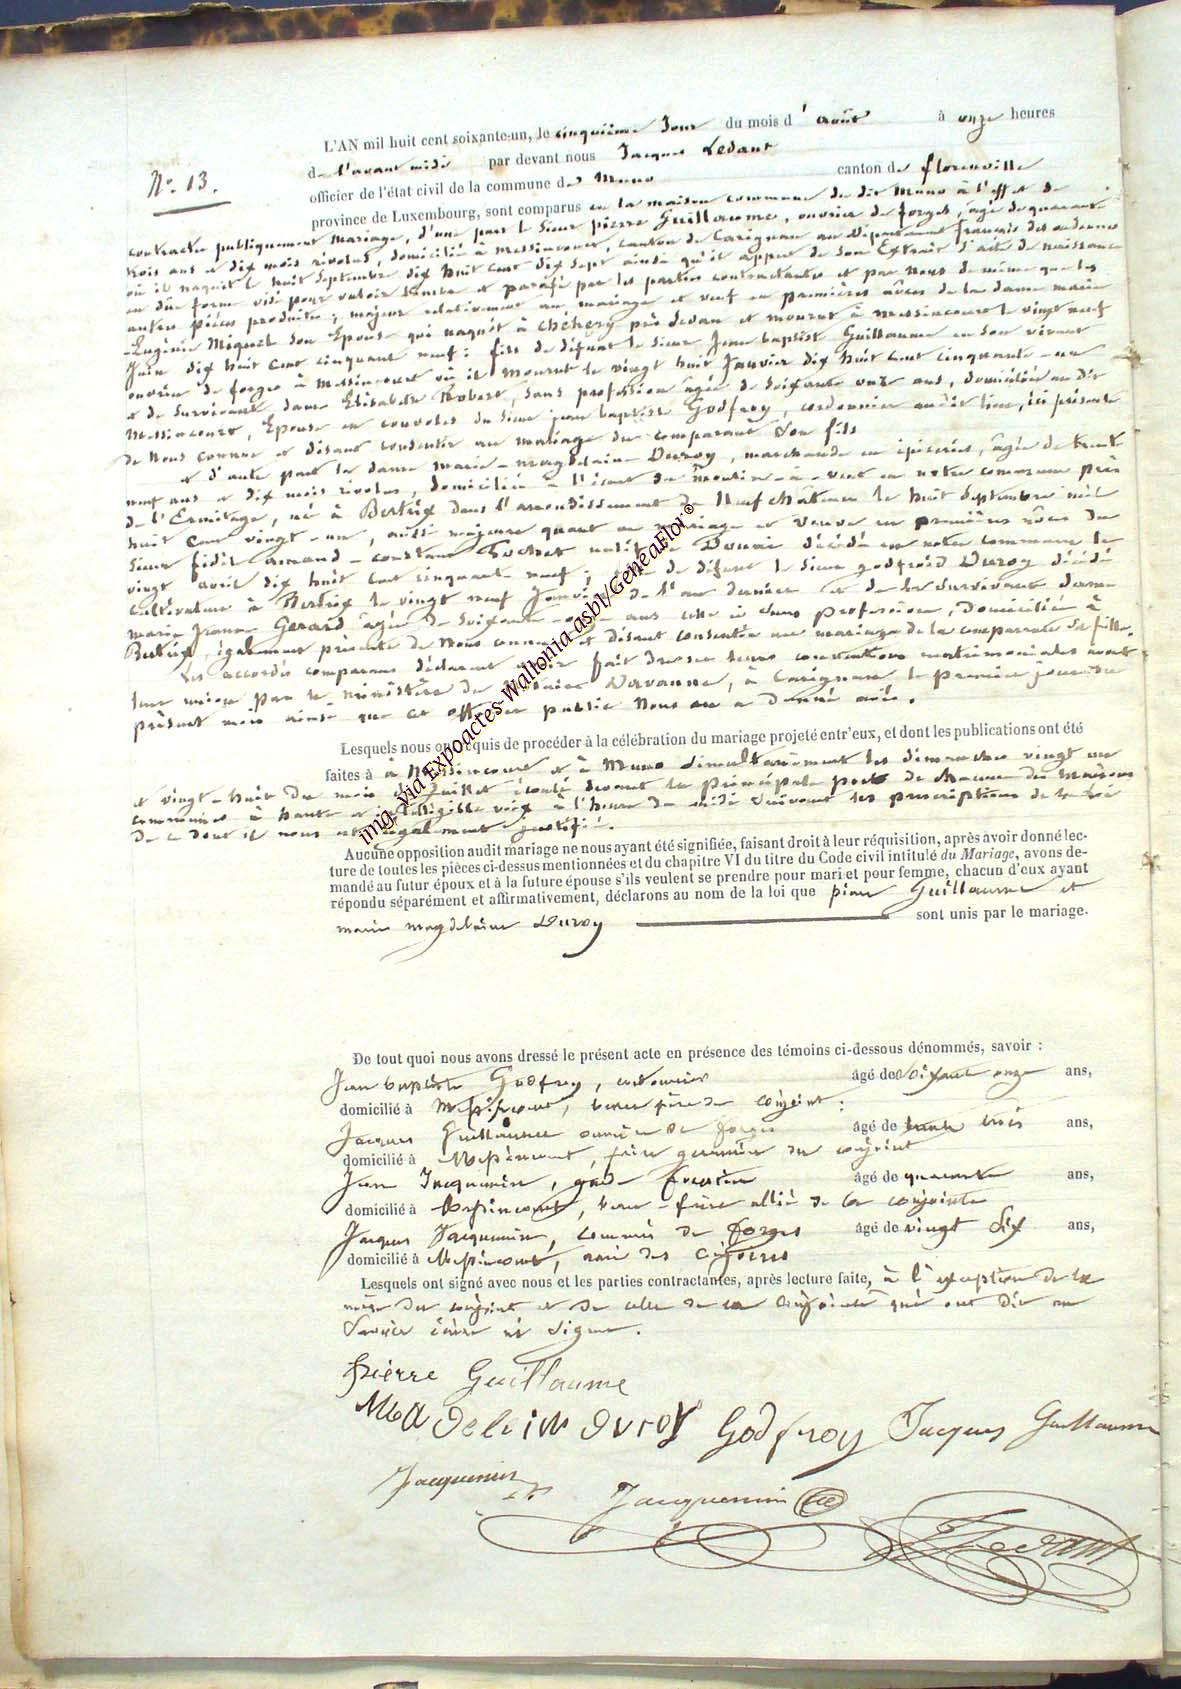 N° 13.
L'AN mil huit cent soixante-un, le cinquième Jour du mois d'août à onze heures
de l'avant midi par devant nous Jacques Ledant
officier de l'état civil de la commune de Muno canton de florenville
province de Luxembourg, sont comparus en la maison commune de dit Muno à l'effet de
contracter publiquement mariage, d'une part le Sieur pierre Guillaume, ouvrier de forges, âgé de quarante
trois ans et dix mois révolus, domicilié à Messincourt, canton de Carignan au Département français des ardennes
où il naquit le huit Septembre dix huit cent dix sept ainsi qu'il appert de son Extrait d'acte de naissance
en due forme visé pour valoir timbre et parafé par les parties contractantes et par nous de même que les
autres pièces produites; majeur relativement au mariage et veuf en premières nôces de la dame marie
-Eugénie Miquel son Epouse qui naquit à Chéhéry près Sedan et mourut à Messincourt le vingt neuf
Juin dix huit cent cinquante neuf: fils de défunt le sieur Jean baptiste Guillaume en son vivant
ouvrier de forges à Messincourt où il mourut le vingt huit Janvier dix huit cent cinquante-un
et de survivante dame Elisabeth Robert, sans profession âgée de soixante onze ans, domiciliée au dit
Messincourt, Epouse en convoles du Sieur jean baptiste Godfroy, cordonnier audit lieu, ici présente
de Nous connue et disant consentir au mariage du comparant son fils
et d'autre part la dame marie-magdelaine Duroy, marchande en épiceries, âgée de trente
neuf ans et dix mois révolus, domiciliée à l'écart du Moulin-à-vent en notre commune près
de l'Ermitage, née à Bertrix dans l'arrondissement de Neufchâteau le huit Septembre mil
huit cent vingt-un, aussi majeure quant au mariage et veuve en premières nôces du
Sieur fidèl amand-constant natif de Douai décédé en notre commune le
vingt avril dix huit cent cinquante neuf; fille de défunt le Sieur godfroid Duroy décédé
Cultivateur à Bertrix le vingt neuf Janvier de l'an dernier et de la survivante dame
marie Jeanne Gerard âgée de soixante ans sans profession, domiciliée à
Bertrix, également présente de Nous connue et disant consentir au mariage de la comparante sa fille.
Les accordés comparans déclarent avoir fait dresser leurs conventions matrimoniales avant
leur union par le ministère du Notaire Davanne, à Carignan le premier jour du
présent mois ainsi que cet officier public Nous en a donné avis.
Lesquels nous ont requis de procéder à la célébration du mariage projeté entr'eux, et dont les publications ont été
faites à à Messincourt et à Muno simultanément les dimanches vingt un
et vingt-huit du mois de Juillet écoulé devant la principale porte de chacune des Maisons
communes à haute et intelligible voix à l'heure de midi suivant les prescriptions de la loi
de ce dont il nous est également justifié.
Aucune opposition audit mariage ne nous ayant été signifiée, faisant droit à leur réquisition, après avoir donné lec-
ture de toutes les pièces ci-dessus mentionnées et du chapitre VI du titre du Code civil intitulé du Mariage, avons de-
mandé au futur époux et à la future épouse s'ils veulent se prendre pour mari et pour femme, chacun d'eux ayant
répondu séparément et affirmativement, déclarons au nom de la loi que pierre Guillaume et
marie magdelaine Duroy sont unis par le mariage.
De tout quoi nous avons dressé le présent acte en présence des témoins ci-dessous dénommés, savoir :
Jean baptiste Godfroy, cordonnier âgé de soixante onze ans,
domicilié à Messincourt, beau père du conjoint;
Jacques Guillaume ouvrier de forges âgé de trente trois ans,
domicilié à Messincourt, frère germain du conjoint
Jean Jacquemin, garde forestier âgé de quarante ans,
domicilié à Messincourt, beau-frère allié de la conjointe
Jacques Jacquemin, commis de forges âgé de vingt six ans,
domicilié à Messincourt, ami des conjoints
Lesquels ont signé avec nous et les parties contractantes, après lecture faite, à l'exception de la
mère du conjoint et de celle de la conjointe qui ont dit ne
Savoir écrire ni signer.
pierre Guillaume
Madelein duroy Godfroy Jacques Guillaume
Jacquemin Jacquemin JLedant
img. via Expoactes-Wallonia-asbl/GeneaFlor®